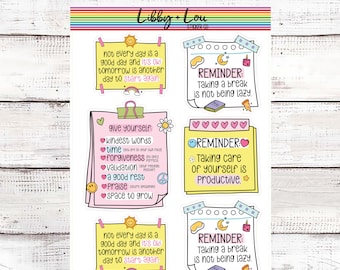 Libby + Lou
STICKER CO
not every day is a
good day and it's ok
tomorrow is another
day to start again
REMINDER:
Taking a break
is not being lazy
give yourself:
kindest words
time
forgiveness
validation
a good rest
praise
space to grow
REMINDER:
Taking care
of yourself is
PRODUCTIVE.
not every day is a
good day and it's ok
tomorrow is another
day to start again
REMINDER:
Taking a break
is not being lazy